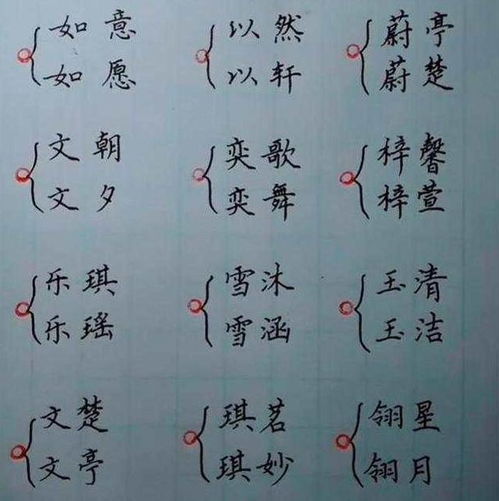 如意 以然 蔚亭
如愿 以轩 蔚楚
文朝 奕歌 梓馨
文夕 奕舞 梓萱
乐琪 雪沐 玉清
乐瑶 雪涵 玉洁
文楚 琪茗 翎星
文亭 琪妙 翎月